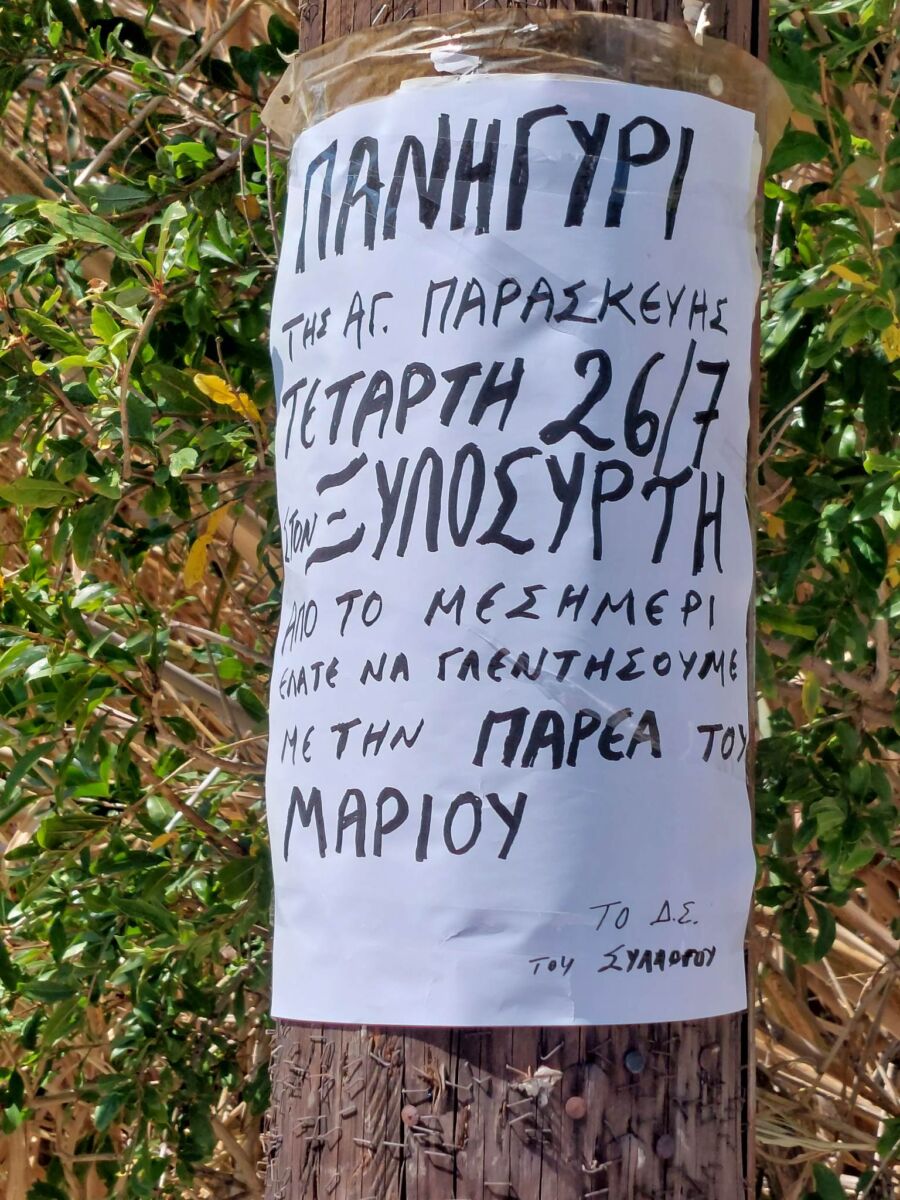 ΠΑΝΗΓΥΡΙ
ΤΗΣ ΑΓ. ΠΑΡΑΣΚΕΥΗΣ
ΤΕΤΑΡΤΗ 26/7
ΣΤΟΝ ΞΥΛΟΣΥΡΤΗ
ΑΠΟ ΤΟ ΜΕΣΗΜΕΡΙ
ΕΛΑΤΕ ΝΑ ΓΛΕΝΤΗΣΟΥΜΕ
ΜΕ ΤΗΝ ΠΑΡΕΑ ΤΟΥ
ΜΑΡΙΟΥ
ΤΟ Δ.Σ.
ΤΟΥ ΣΥΛΛΟΓΟΥ